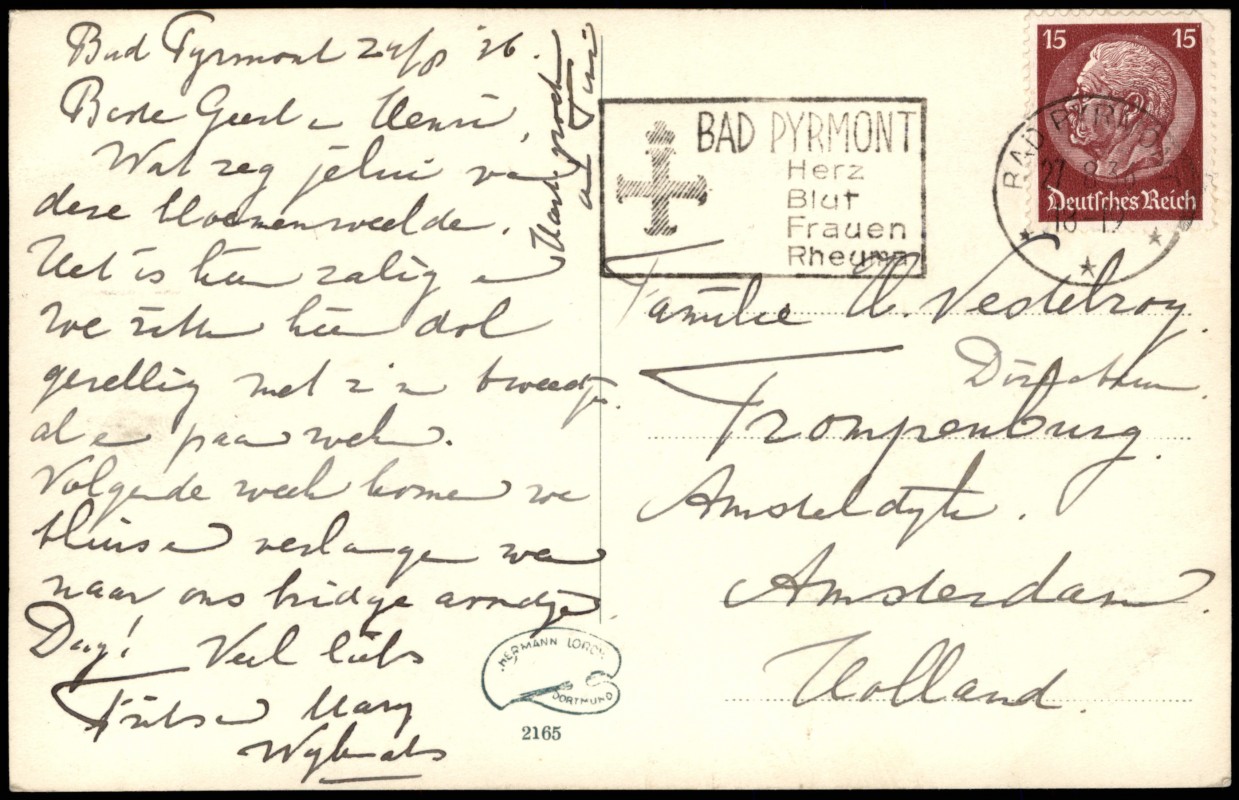 Bad Pyrmont 24/8 '36.
Beste Geert en Henri,
Wat zeg jelui van
deze bloemenweelde.
Het is hier zalig en
we zitten hier dol
gezellig met z'n tweetjes
al een paar weken.
Volgende week komen we
thuis en verlangen weer
naar ons bridge avondje.
Dag! Veel liefs
Frits en Mary
Hartl. groeten
BAD PYRMONT
Herz
Blut
Frauen
Rheuma
15 15
Deutsches Reich
BAD PYRMONT
18-19
Familie
Trompenburg.
Amsteldijk.
Amsterdam.
Holland.
HERMANN LORCH
DORTMUND
2165